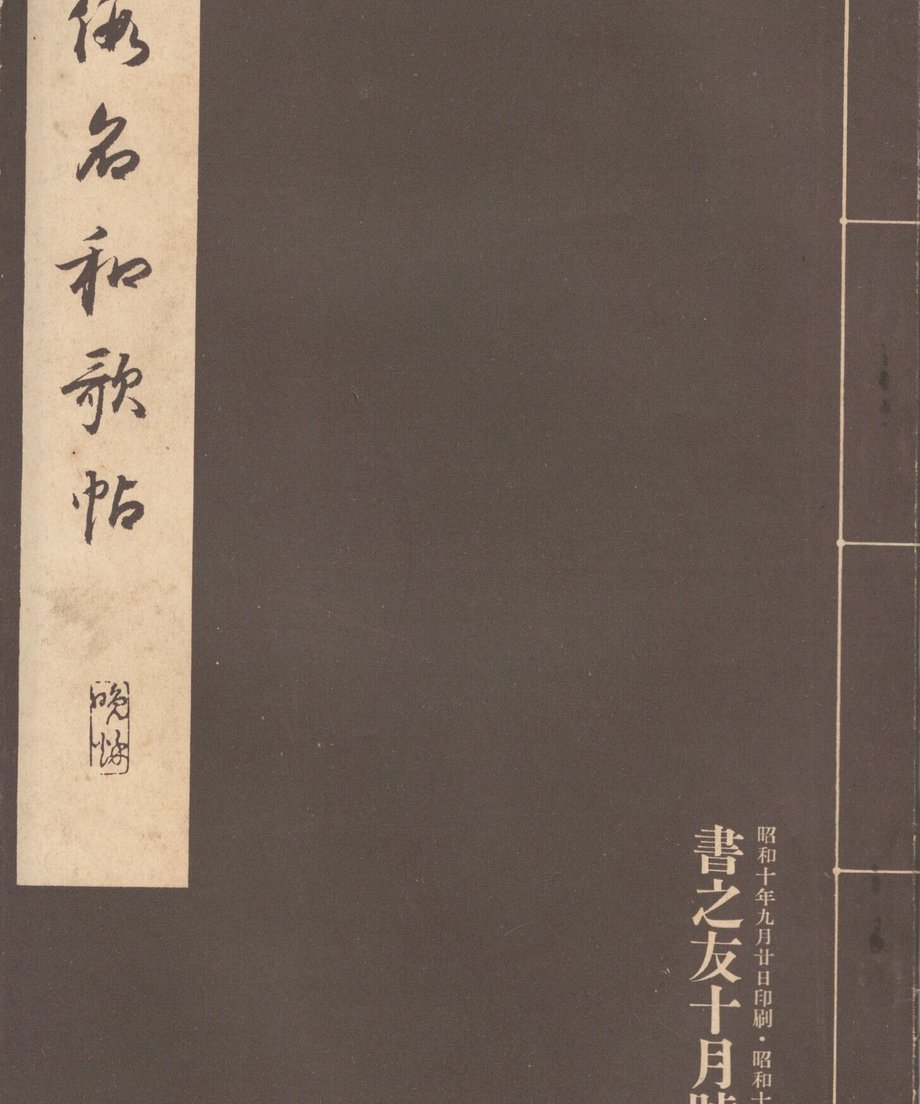 昭和十年九月廿日印刷・昭和十
書之友十月號
假名和歌帖